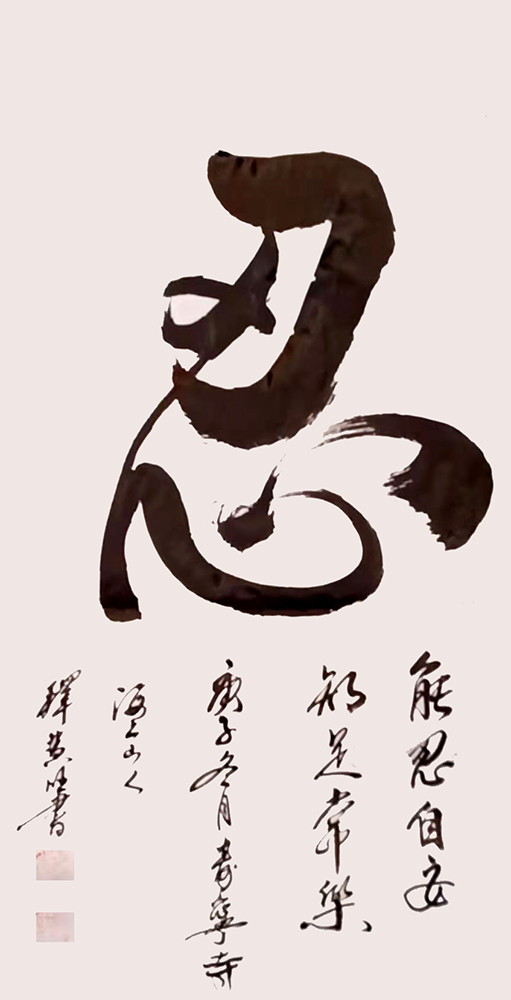 忍
能忍自安
知足常樂
庚子冬月壽寧寺
海上山人
釋黄
書